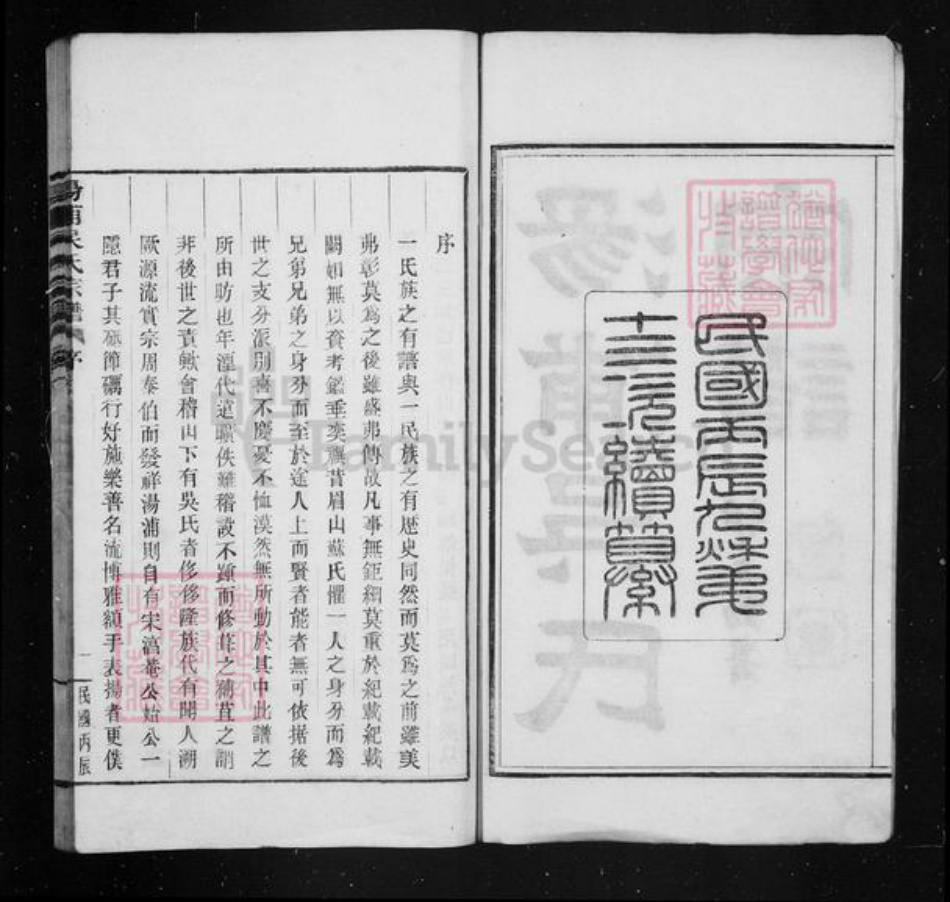 民國丙辰九秋第
十三次續纂
序
一氏族之有譜與一民族之有歷史同然而莫爲之前雖美
弗彰莫爲之後雖盛弗傳故凡事無鉅細莫重於紀載紀載
闕如無以資考鑑垂奕禩昔眉山蘇氏懼一人之身分而爲
兄弟兄弟之身分而至於途人上而賢者能者無可依据後
世之支分派別喜不慶憂不恤漠然無所動於其中此譜之
所由昉也年湮代遠職佚難稽設不踵而修葺之補苴之詎
非後世之責歟會稽山下有吳氏者侈侈隆族代有聞人溯
厥源流實宗周泰伯而發祥湯浦則自有宋 菴公始公一
隱君子其砥節礪行好施樂善名流博雅額手表揚者更僕
湯浦吳氏宗譜
序
一
民國丙辰
FamilySearch